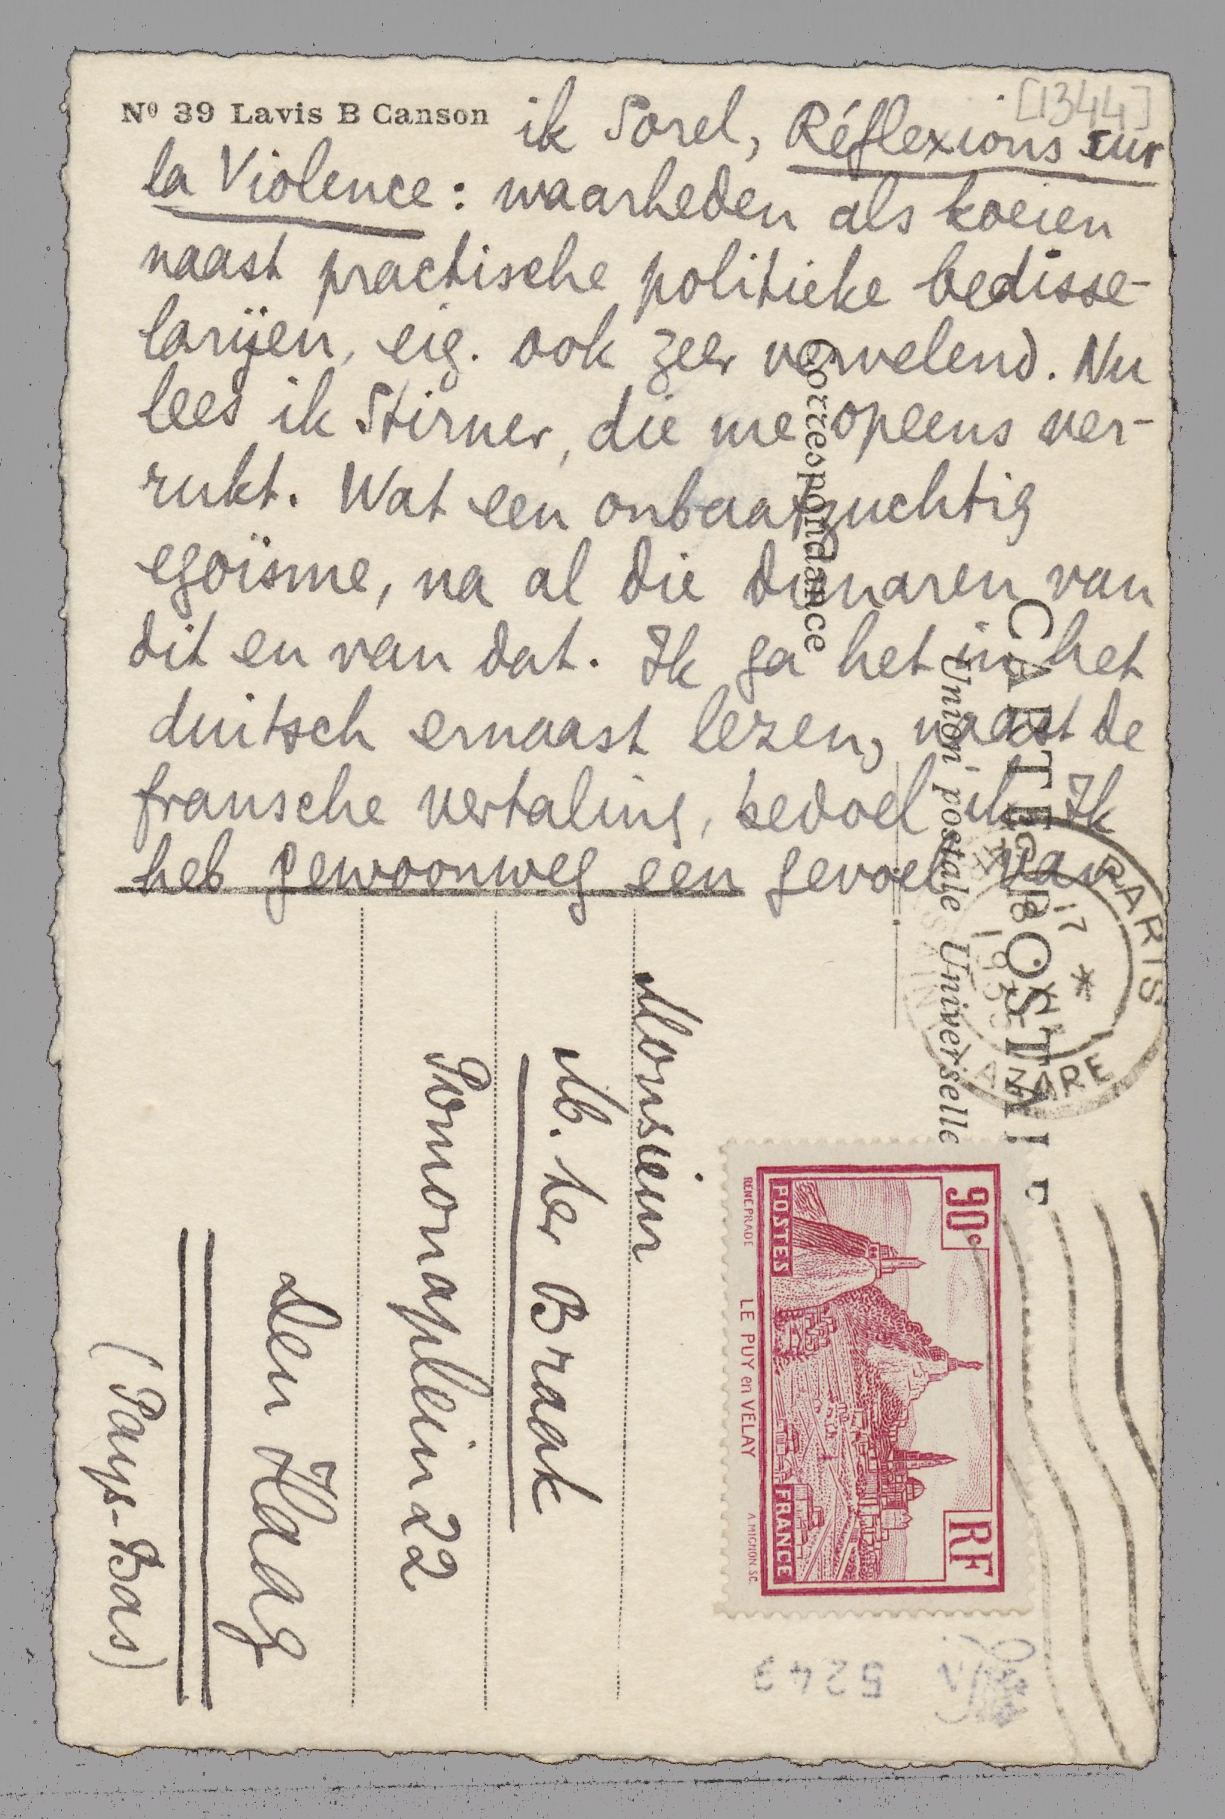 Nº 39 Lavis B Canson
[1344]
ik Sorel, Réflexions sur
la Violence: waarheden als koeien
naast practische politieke bedisse-
larijen, eig. ook zeer vervelend. Nu
lees ik Stirner, die me opeens ver-
rukt. Wat een onbaatzuchtig
egoïsme, na al die dienaren van
dit en van dat. Ik ga het in het
duitsch ernaast lezen, naast de
fransche vertaling, bedoel ik. Ik
heb gewoonweg een gevoel van
CARTE POSTALE
Union postale Universelle
Correspondance
PARIS
17
*
XII
LAZARE
90c
RF
POSTES
FRANCE
RENE PRADE
LE PUY en VELAY
A. MIGNON SC.
Monsieur
M. ter Braak
Pomonaplein 22
Den Haag
(Pays-Bas)
5243